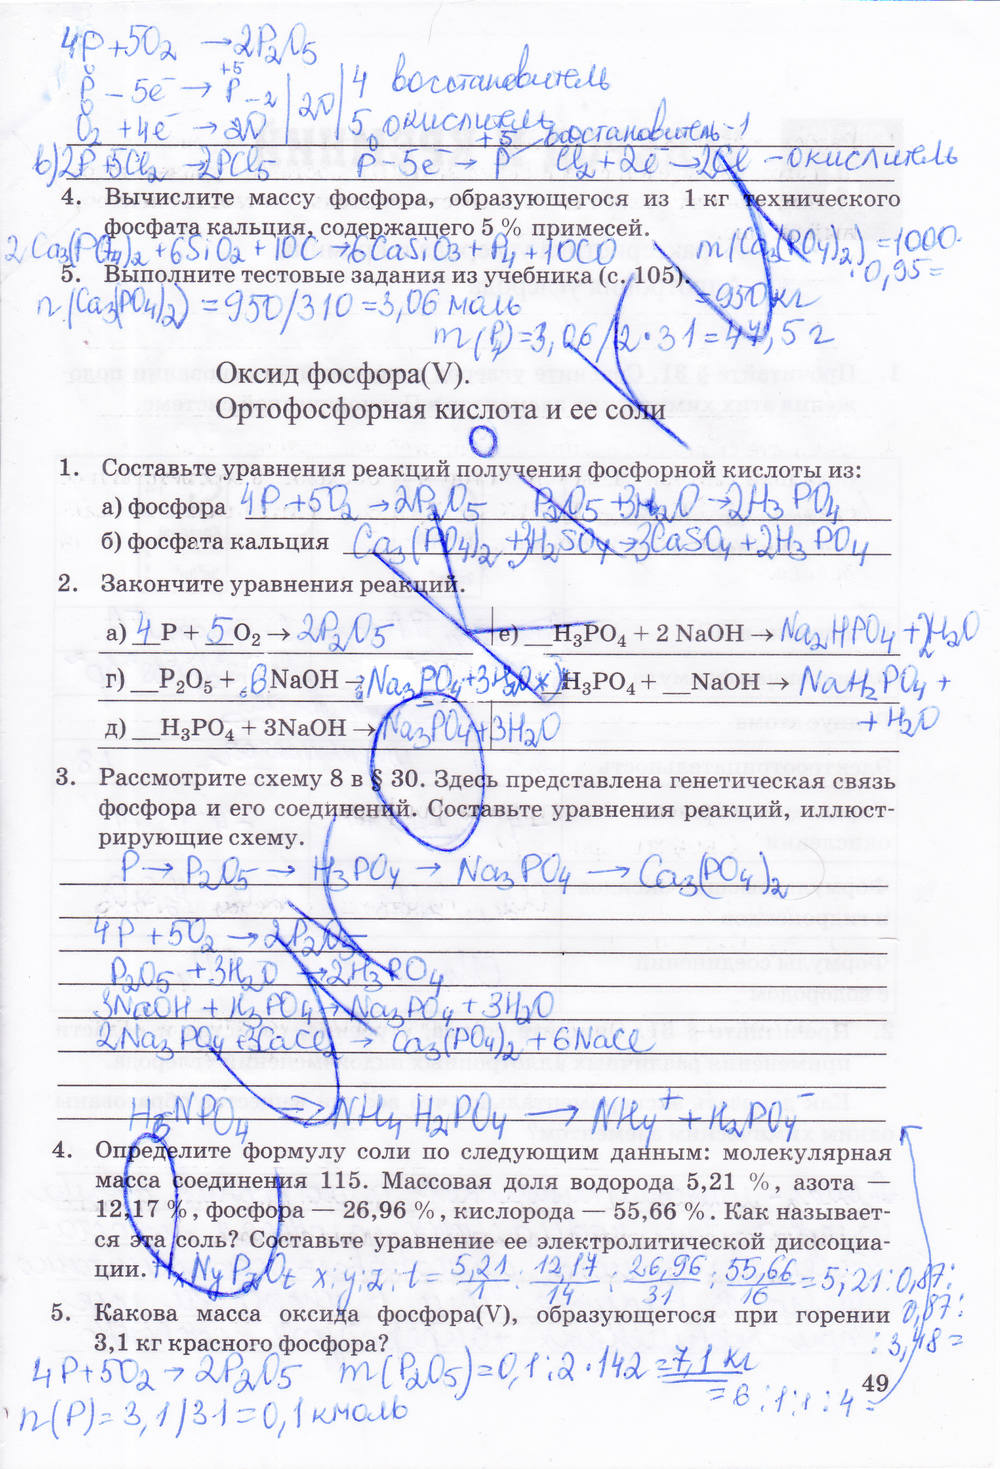 4P + 5O₂ → 2P₂O₅
P⁰ – 5e → P⁺⁵ | 20 | 4 восстановитель
O₂⁰ + 4e → 2O⁻² | 5 окислитель
в) 2P + 5Cl₂ → 2PCl₅ P⁰ – 5e → P⁺⁵ восстановитель Cl₂ + 2e → 2Cl⁻¹ – окислитель
4. Вычислите массу фосфора, образующегося из 1 кг технического
фосфата кальция, содержащего 5 % примесей.
2Ca₃(PO₄)₂ + 6SiO₂ + 10C → 6CaSiO₃ + P₄ + 10CO m(Ca₃(PO₄)₂) = 1000·
· 0,95 =
5. Выполните тестовые задания из учебника (с. 105).
= 950 кг
n(Ca₃(PO₄)₂) = 950/310 = 3,06 моль
m(P₄) = 3,06/2 · 31 = 47,5 г
Оксид фосфора(V).
Ортофосфорная кислота и ее соли
1. Составьте уравнения реакций получения фосфорной кислоты из:
а) фосфора 4P + 5O₂ → 2P₂O₅ P₂O₅ + 3H₂O → 2H₃PO₄
б) фосфата кальция Ca₃(PO₄)₂ + 3H₂SO₄ → 3CaSO₄ + 2H₃PO₄
2. Закончите уравнения реакций.
а) 4 P + 5 O₂ → 2P₂O₅ е) __H₃PO₄ + 2 NaOH → Na₂HPO₄ + 2H₂O
г) __P₂O₅ + 6 NaOH → 2Na₃PO₄ + 3H₂O ж) H₃PO₄ + __NaOH → NaH₂PO₄ +
+ H₂O
д) __H₃PO₄ + 3NaOH → Na₃PO₄ + 3H₂O
3. Рассмотрите схему 8 в § 30. Здесь представлена генетическая связь
фосфора и его соединений. Составьте уравнения реакций, иллюст-
рирующие схему.
P → P₂O₅ → H₃PO₄ → Na₃PO₄ → Ca₃(PO₄)₂
4P + 5O₂ → 2P₂O₅
P₂O₅ + 3H₂O → 2H₃PO₄
3NaOH + H₃PO₄ → Na₃PO₄ + 3H₂O
2Na₃PO₄ + 3CaCl₂ → Ca₃(PO₄)₂ + 6NaCl
H₆NPO₄ = NH₄H₂PO₄ → NH₄⁺ + H₂PO₄⁻
4. Определите формулу соли по следующим данным: молекулярная
масса соединения 115. Массовая доля водорода 5,21 %, азота —
12,17 %, фосфора — 26,96 %, кислорода — 55,66 %. Как называет-
ся эта соль? Составьте уравнение ее электролитической диссоциа-
ции. HxNyPzOt x:y:z:t = 5,21/1 : 12,17/14 : 26,96/31 : 55,66/16 = 5,21 : 0,87 :
0,87 :
: 3,48 =
5. Какова масса оксида фосфора(V), образующегося при горении
3,1 кг красного фосфора?
4P + 5O₂ → 2P₂O₅ m(P₂O₅) = 0,1 : 2 · 142 = 7,1 кг
= 6 : 1 : 1 : 4 =
n(P) = 3,1/31 = 0,1 кмоль
49